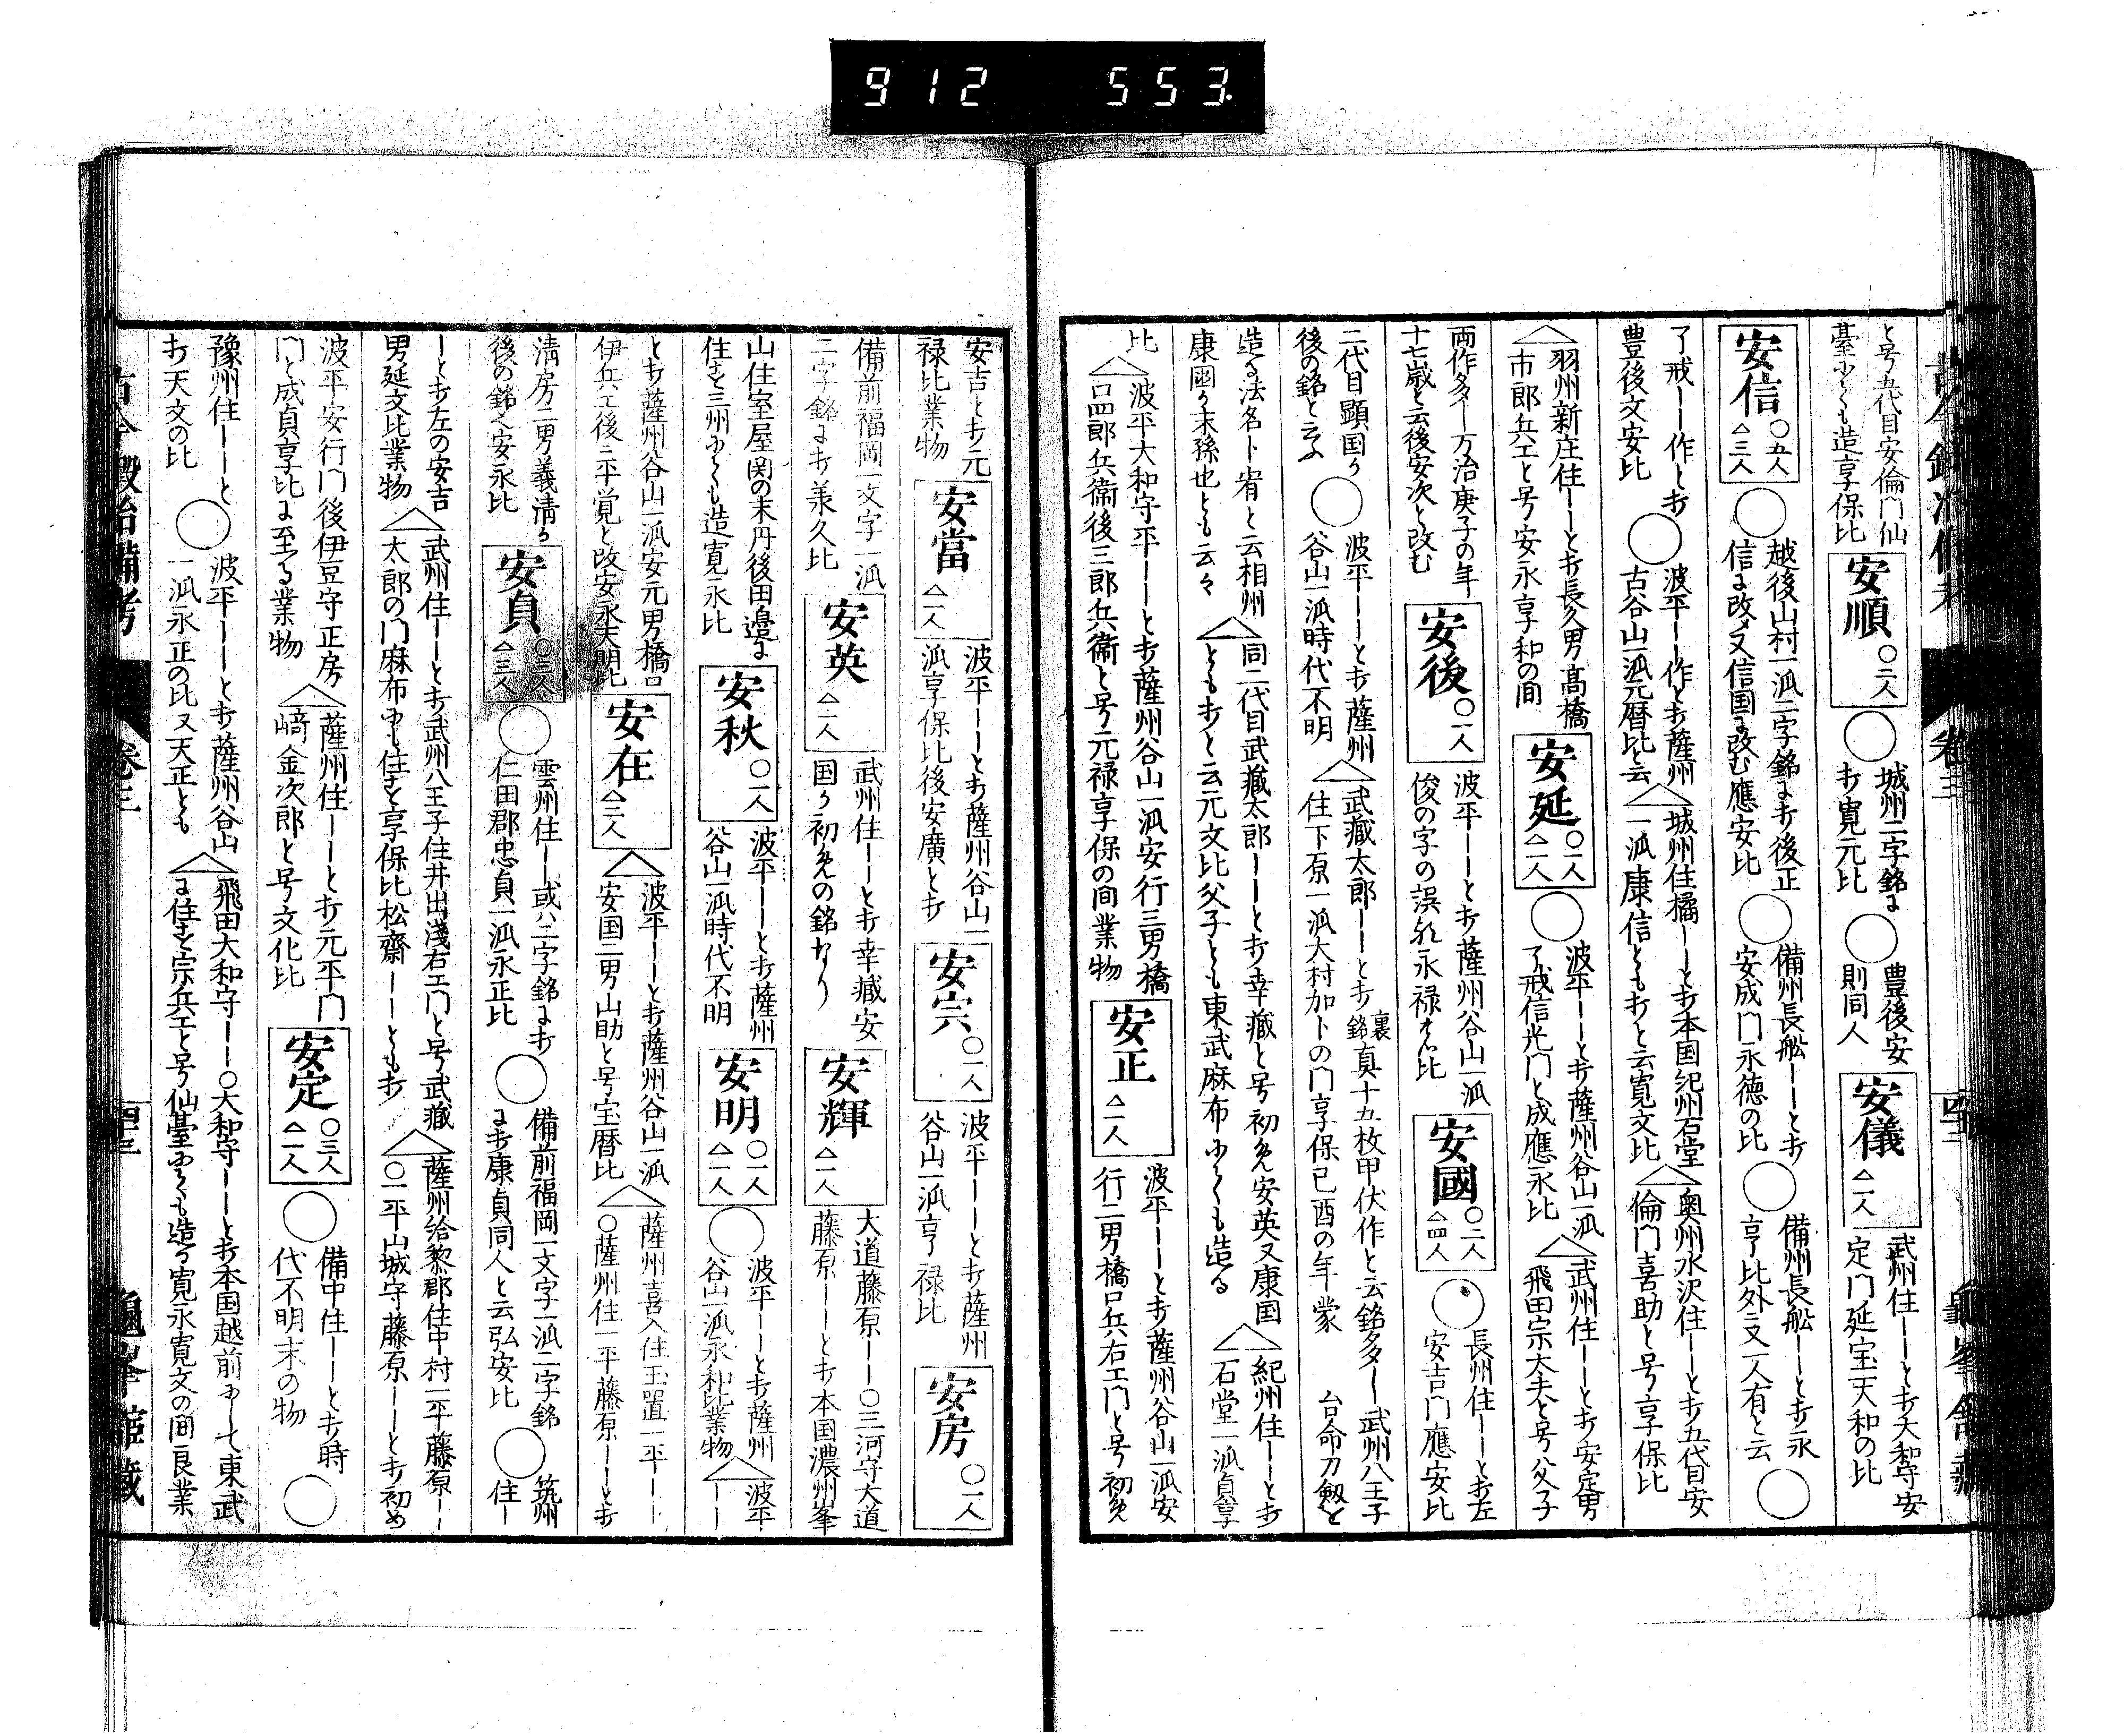 912 553.
と号五代目安倫門仙
臺ニても造享保比
安順 〇二人
城州二字銘に
打寛元比
豊後安
則同人
安儀 △一人
武州住――と打大和守安
定門延宝天和の比
安信 〇五人 △三人
越後山村一派二字銘に打後正
信に改又信国に改む應安比
備州長舩――と打
安成門永徳の比
備州長舩――と打永
享比外ニ又一人有と云
了戒――作と打
豊後文安比
波平――作と打薩州
古谷山一派元暦比と云
城州住橘――と打本国紀州石堂
一派康信とも打と云寛文比
奥州水沢住――と打五代目安
倫門喜助と号享保比
羽州新庄住――と打長久男髙橋
市郎兵エと号安永享和の間
安延 〇二人 △二人
波平――と打薩州谷山一派
了戒信光門と成應永比
武州住――と打安定男
飛田宗太夫と号父子
両作多し万治庚子の年
十七歳と云後安次と改む
安後 〇一人
波平――と打薩州谷山一派
俊の字の誤れ永禄比
安國 〇二人 △四人
長州住――と打左
安吉門應安比
二代目顕国か
後の銘と云ふ
波平――と打薩州
谷山一派時代不明
武藏太郎――と打裏銘真十五枚甲伏作と云銘多し武州八王子
住下原一派大村加卜の門享保己酉の年蒙 台命刀劔を
造る法名卜宥と云相州
康國か末孫也とも云々
同二代目武藏太郎――と打幸藏と号初め安英又康国
とも打と云元文比父子とも東武麻布ニても造る
紀州住――と打
石堂一派貞享
比
波平大和守平――と打薩州谷山一派安行三男橋
口四郎兵衞後三郎兵衞と号元禄享保の间業物
安正 △二人
波平――と打薩州谷山一派安
行二男橋口兵右エ門と号初め
安吉と打元
禄比業物
安當 △一人
波平――と打薩州谷山一
派享保比後安廣と打
安宍 〇一人
波平――と打薩州
谷山一派享禄比
安房 〇一人
備前福岡一文字一派
二字銘に打美久比
安英 △二人
武州住――と打幸藏安
国か初めの銘なり
安輝 △二人
大道藤原――〇三河守大道
藤原――と打本国濃州峯
山住室屋関の末丹後田邊に
住す三州ニても造寛永比
安秋 〇一人
波平――と打薩州
谷山一派時代不明
安明 〇一人 △二人
波平――と打薩州
谷山一派永和比業物
波平――
と打薩州谷山一派安元男橋口
伊兵エ後三平覚と改安永天明比
安在 △三人
波平――と打薩州谷山一派
安国二男山助と号宝暦比
薩州喜入住玉置一平――
〇薩州住一平藤原――と打
淸房二男義淸か
後の銘と安永比
安貞 〇三人 △三人
雲州住――或ハ二字銘に打
仁田郡忠貞一派永正比
備前福岡一文字一派二字銘
に打康貞同人と云弘安比
筑州
住―
―と打左の安吉
男延文比業物
武州住――と打武州八王子住井出淺右エ門と号武藏
太郎の門麻布ニも住す享保比松齋――とも打
薩州給黎郡住中村一平藤原―
〇一平山城守藤原――と打初め
波平安行門後伊豆守正房
門と成貞享比に至る業物
薩州住――と打元平門
﨑金次郎と号文化比
安定 〇三人 △二人
備中住――と打時
代不明末の物
豫州住――と
打天文の比
波平――と打薩州谷山
一派永正の比又天正とも
飛田大和守――〇大和守――と打本国越前ニて東武
に住す宗兵エと号仙臺ニても造る寛永寛文の间良業
古今鍛冶備考 卷三 龜峯館藏